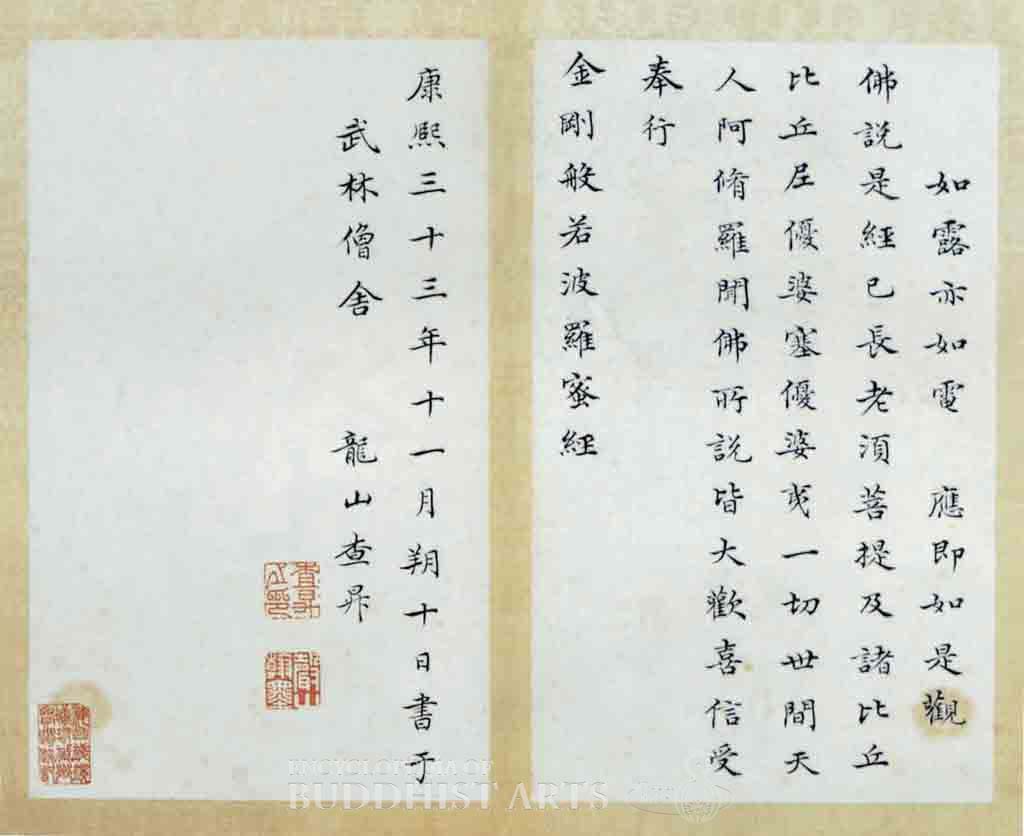 如露亦如電　應即如是觀
佛說是經已長老須菩提及諸比丘
比丘尼優婆塞優婆夷一切世間天
人阿脩羅聞佛所說皆大歡喜信受
奉行
金剛般若波羅蜜經
康熙三十三年十一月朔十日書于
武林僧舍　龍山查昇
ENCYCLOPEDIA OF
BUDDHIST ARTS